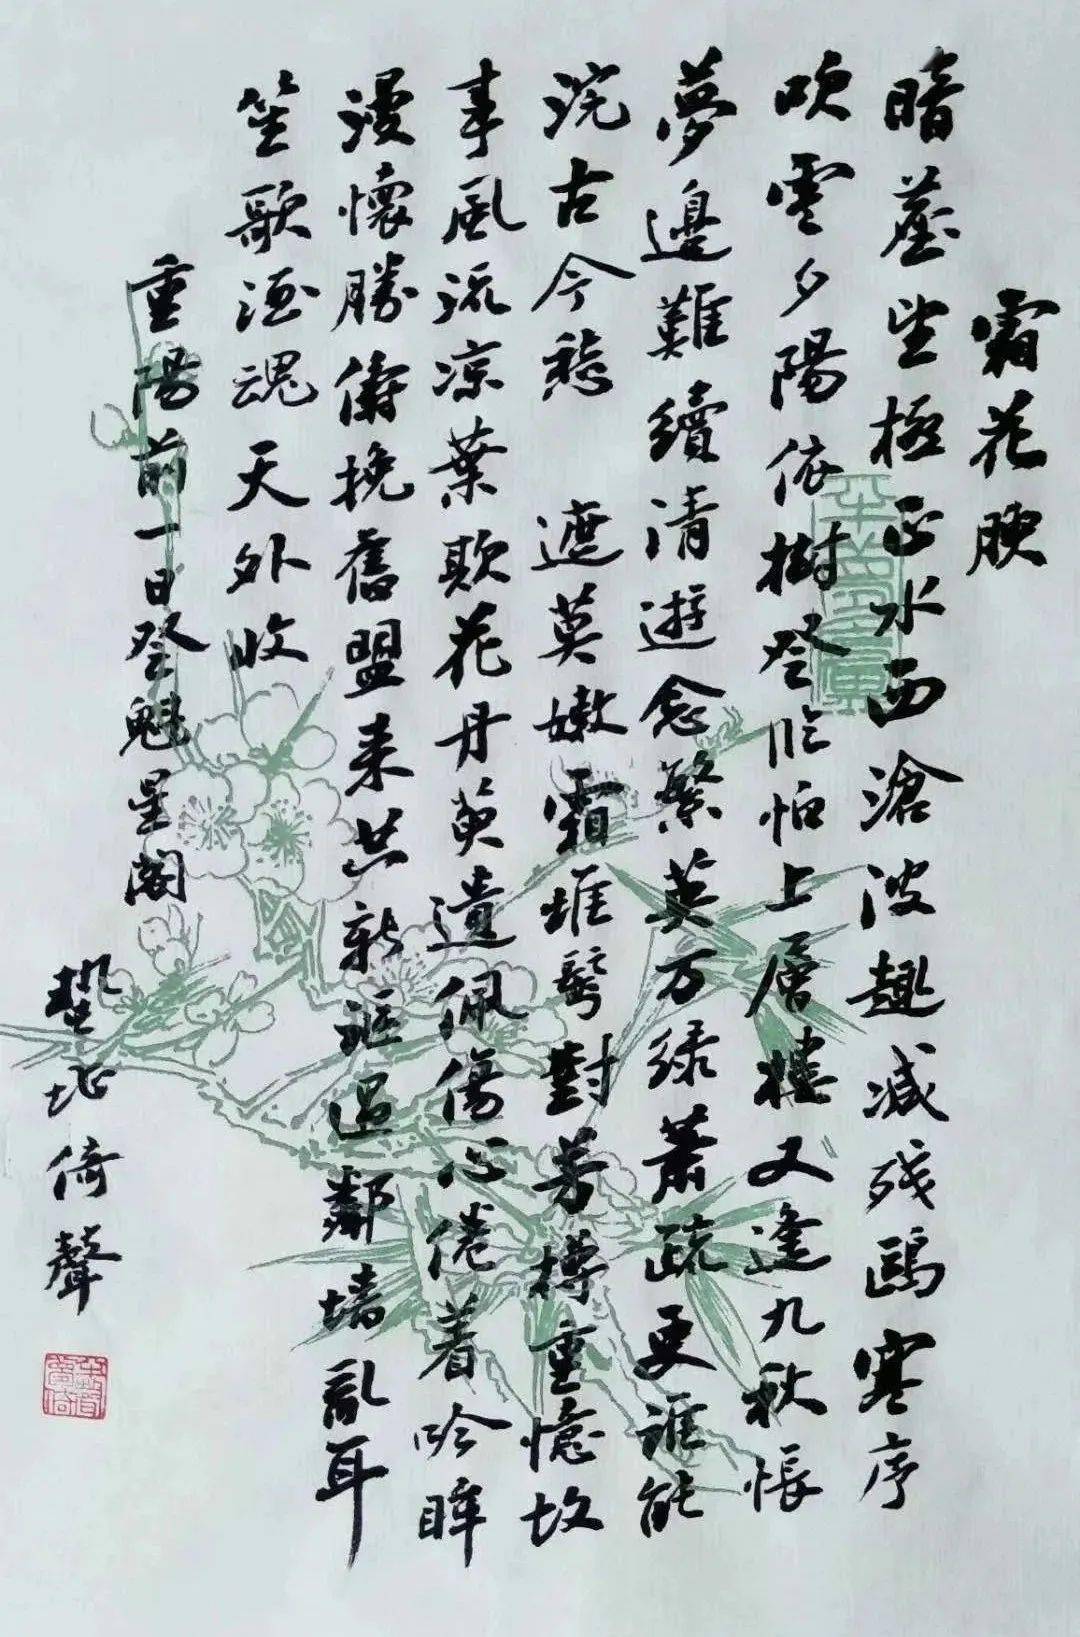 霜花腴
暗望極正水西滄波趣減残鷗寒序
吹雲夕陽依樹登臨怕上層樓又逢九秋悵
夢邊難續清遊念繁英万綠蕭疏更誰能
浣古今愁 遮莫嫩霜堆鬢對芳樽重憶故
事風流涼葉欺花丹萸遺佩傷心倦着吟眸
漫懷勝儔挽舊盟来共新謳過鄰墻亂耳
笙歌酒魂天外收
重陽前一日登魁星閣
倚聲